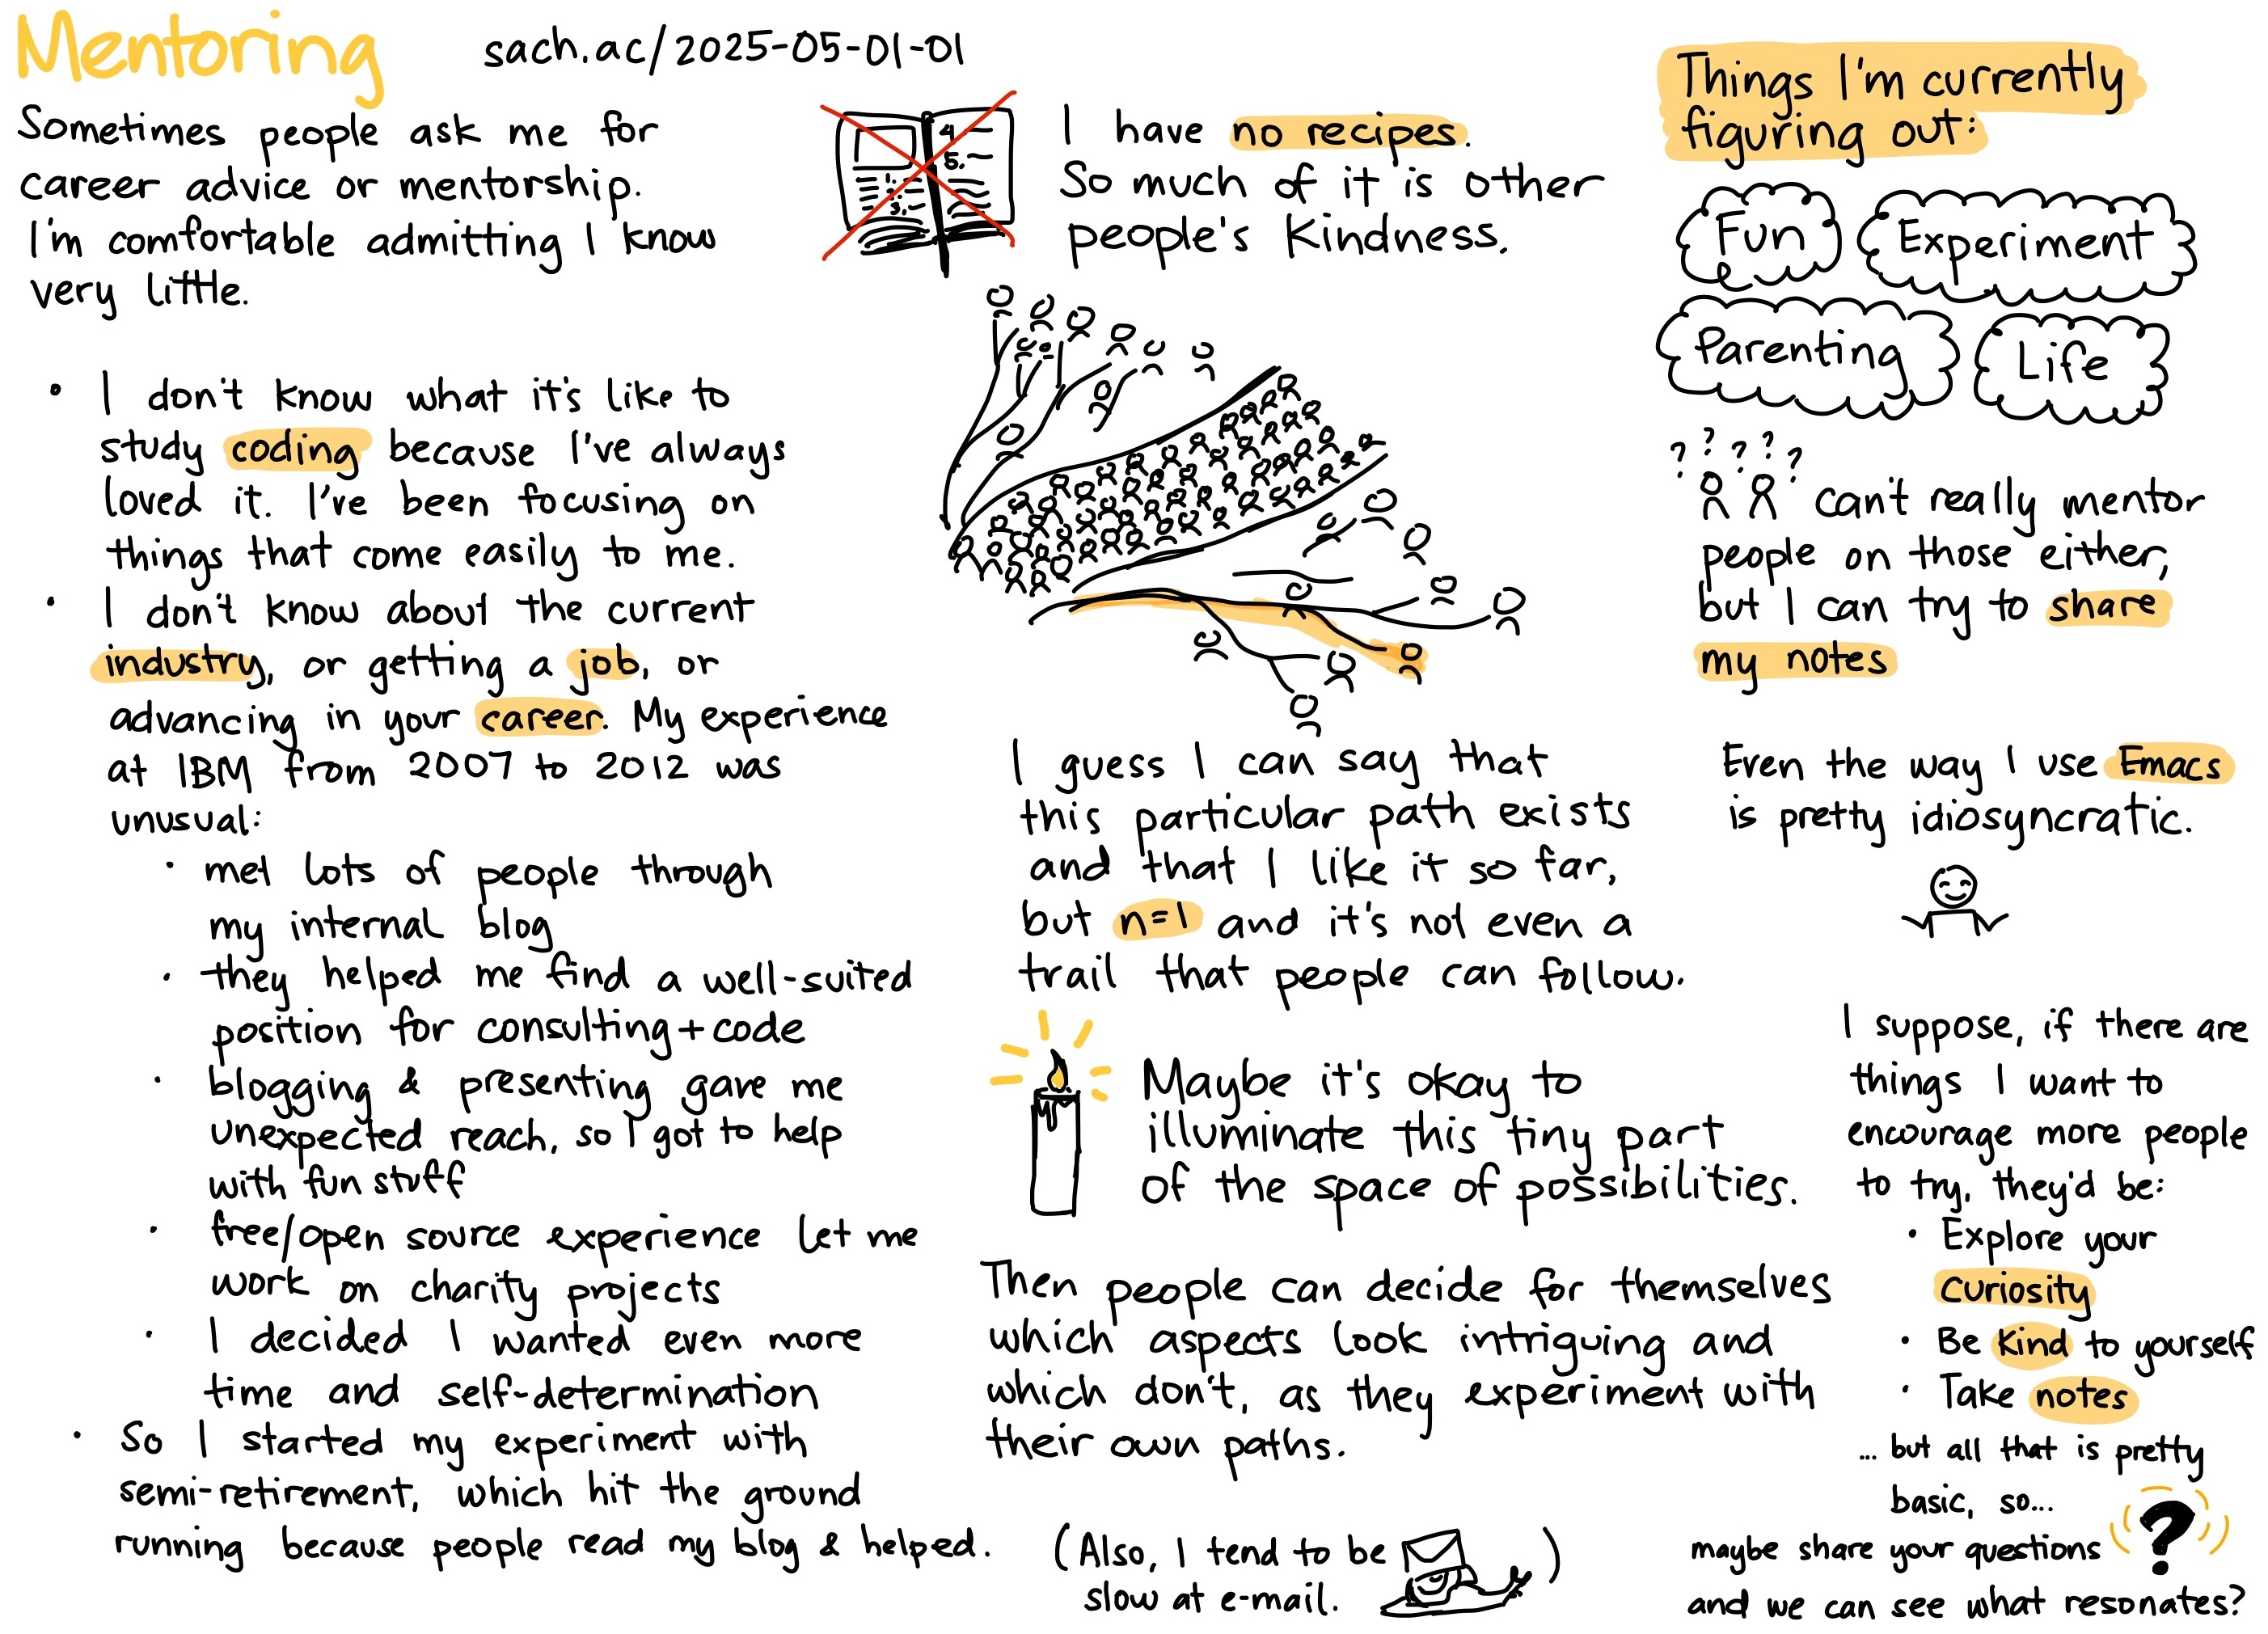 Mentoring
sach.ac/2025-05-01-01
Sometimes people ask me for
career advice or mentorship.
I'm comfortable admitting I know
very little.
• I don't know what it's like to
study coding because I've always
loved it. I've been focusing on
things that come easily to me.
• I don't know about the current
industry, or getting a job, or
advancing in your career. My experience
at IBM from 2007 to 2012 was
unusual:
• met lots of people through
my internal blog
• they helped me find a well-suited
position for consulting + code
• blogging & presenting gave me
unexpected reach, so I got to help
with fun stuff
• free/open source experience let me
work on charity projects
• I decided I wanted even more
time and self-determination
• So I started my experiment with
semi-retirement, which hit the ground
running because people read my blog & helped.
4
5.
1.
3.
I have no recipes.
So much of it is other
people's kindness.
I guess I can say that
this particular path exists
and that I like it so far,
but n=1 and it's not even a
trail that people can follow.
Maybe it's okay to
illuminate this tiny part
of the space of possibilities.
Then people can decide for themselves
which aspects look intriguing and
which don't, as they experiment with
their own paths.
(Also, I tend to be
slow at e-mail. )
Things I'm currently
figuring out:
Fun
Experiment
Parenting
Life
? ? ? ? ?
can't really mentor
people on those either,
but I can try to share
my notes
Even the way I use Emacs
is pretty idiosyncratic.
I suppose, if there are
things I want to
encourage more people
to try, they'd be:
• Explore your
curiosity
• Be kind to yourself
• Take notes
... but all that is pretty
basic, so...
?
maybe share your questions
and we can see what resonates?